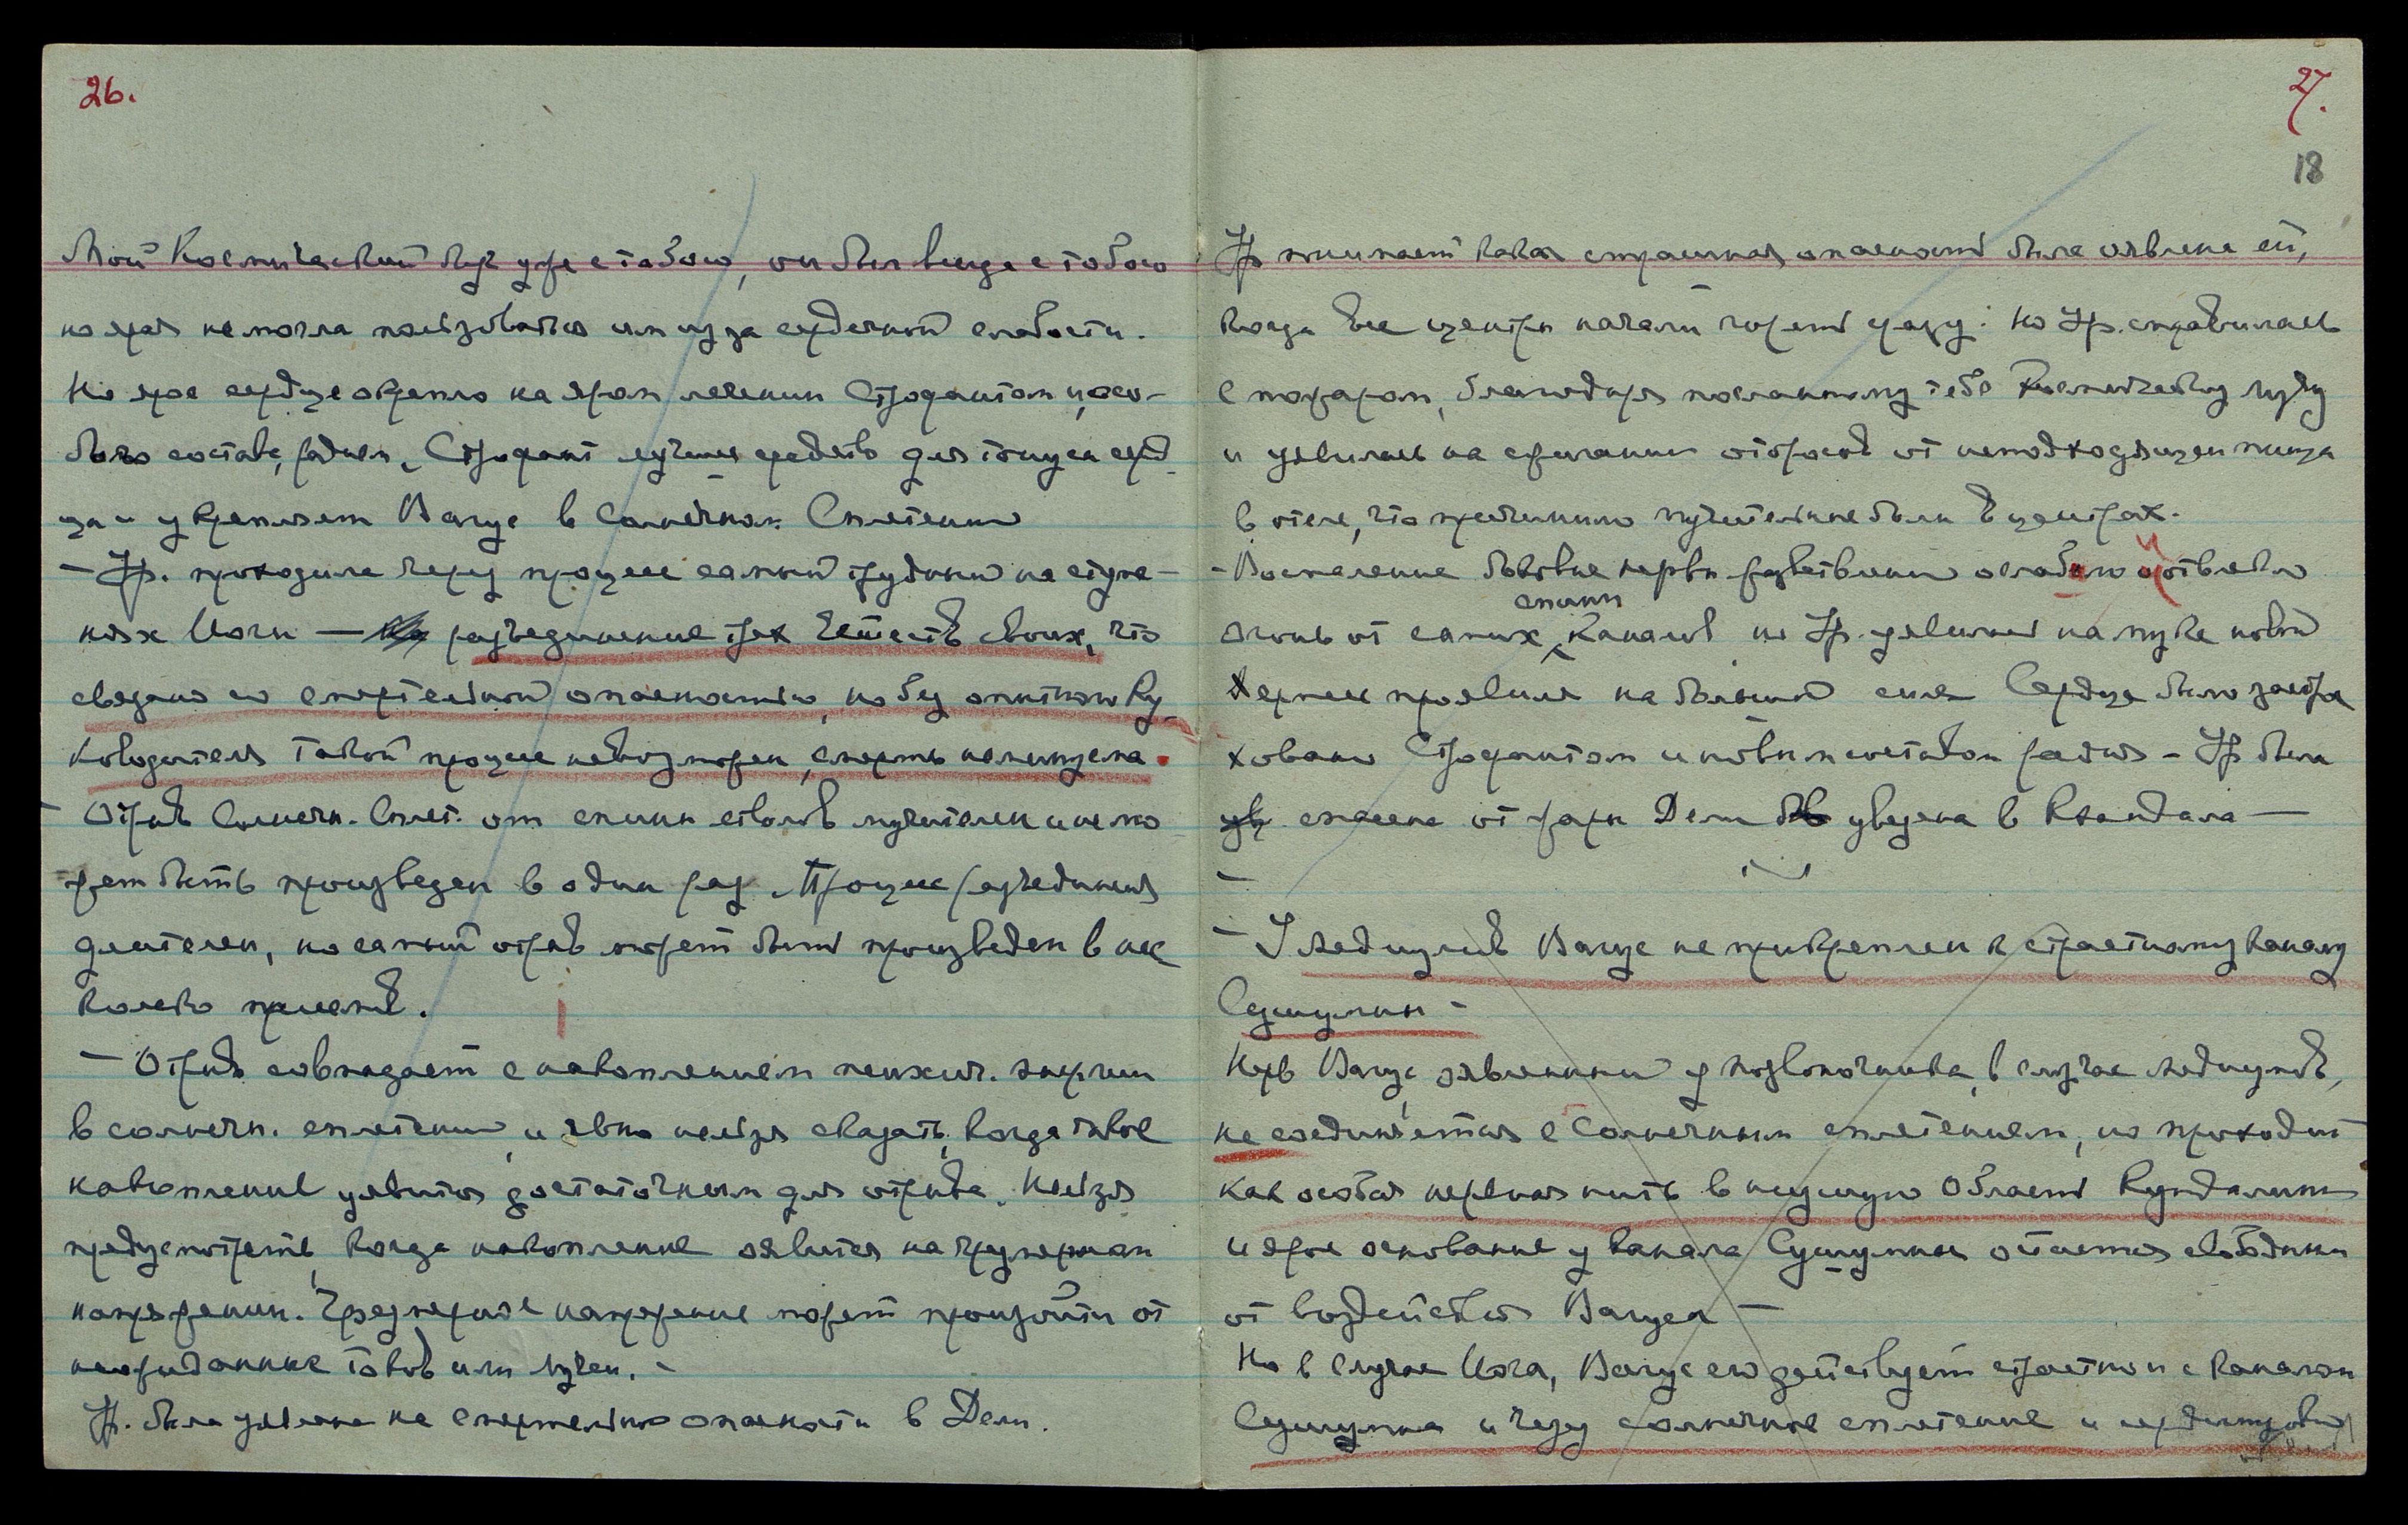 26.
Мой Космический Луч уже с тобою, он был всегда с тобою
но ярая не могла пользоваться им из за сердечной слабости.
Но ярое сердце окрепло на яром лечении Строфантом и, осо-
бого состава, радием. Строфант лучшее средство для тонуса серд
ца и укрепляет Вагус в Солнечном Сплетении
— Ур. проходила через процесс самый трудный на ступе-
нях Йоги — разъединение трех Естеств своих, что
связано со смертельной опасностью, но без опытного Ру-
ководителя такой процесс невозможен, смерть неминуема.
— Отрыв Солнечн. Сплет. от спины стволов мучителен и не мо
жет быть произведен в один раз. Процесс разъединения
длителен, но самый отрыв может быть произведен в нес
колько приемов.
— Отрыв совпадает с накоплением психич. энергии
в солнечн. сплетении, и явно нельзя сказать, когда такое
накопление явится достаточным для отрыва. Нельзя
предусмотреть, когда накопление явится на чрезмерном
напряжении. Чрезмерное напряжение может произойти от
неожиданных токов или лучей. —
Ур. была уявлена на смертельной опасности в Дели.
27.
18
Ур понимает какая страшная опасность была явлена ей,
когда все центры начали гореть сразу. Но Ур. справилась
с пожаром, благодаря посланному тебе Космическому лучу
и уявилась на сжигании отбросов от неподходящей пищи
в теле, что причинило мучительные боли в центрах.
- Воспаление боковые нервы разветвлений ослабило и отвлекло
огонь от самих спины Каналов но Ур. уявилась на муке новой
Но Ур проявила на большой силе Сердце было застра
ховано Строфантом и новым составом радия — Ур была
спасена от жары Дели увезена в Кхандала —
—
— У Медиумов Вагус не прикреплен к страстному каналу
Сушумны —
Нерв Вагус, явленный у позвоночника, в случае Медиумов,
не соединяется с Солнечным сплетением, но проходит
как особая нервная нить в низшую Область Кундалини
и ярое основание у канала Сушумны остается свободным
от воздействия Вагуса —
Но в случае Йога, Вагус его действует страстно и с каналом
Сушумна и через солнечное сплетение и